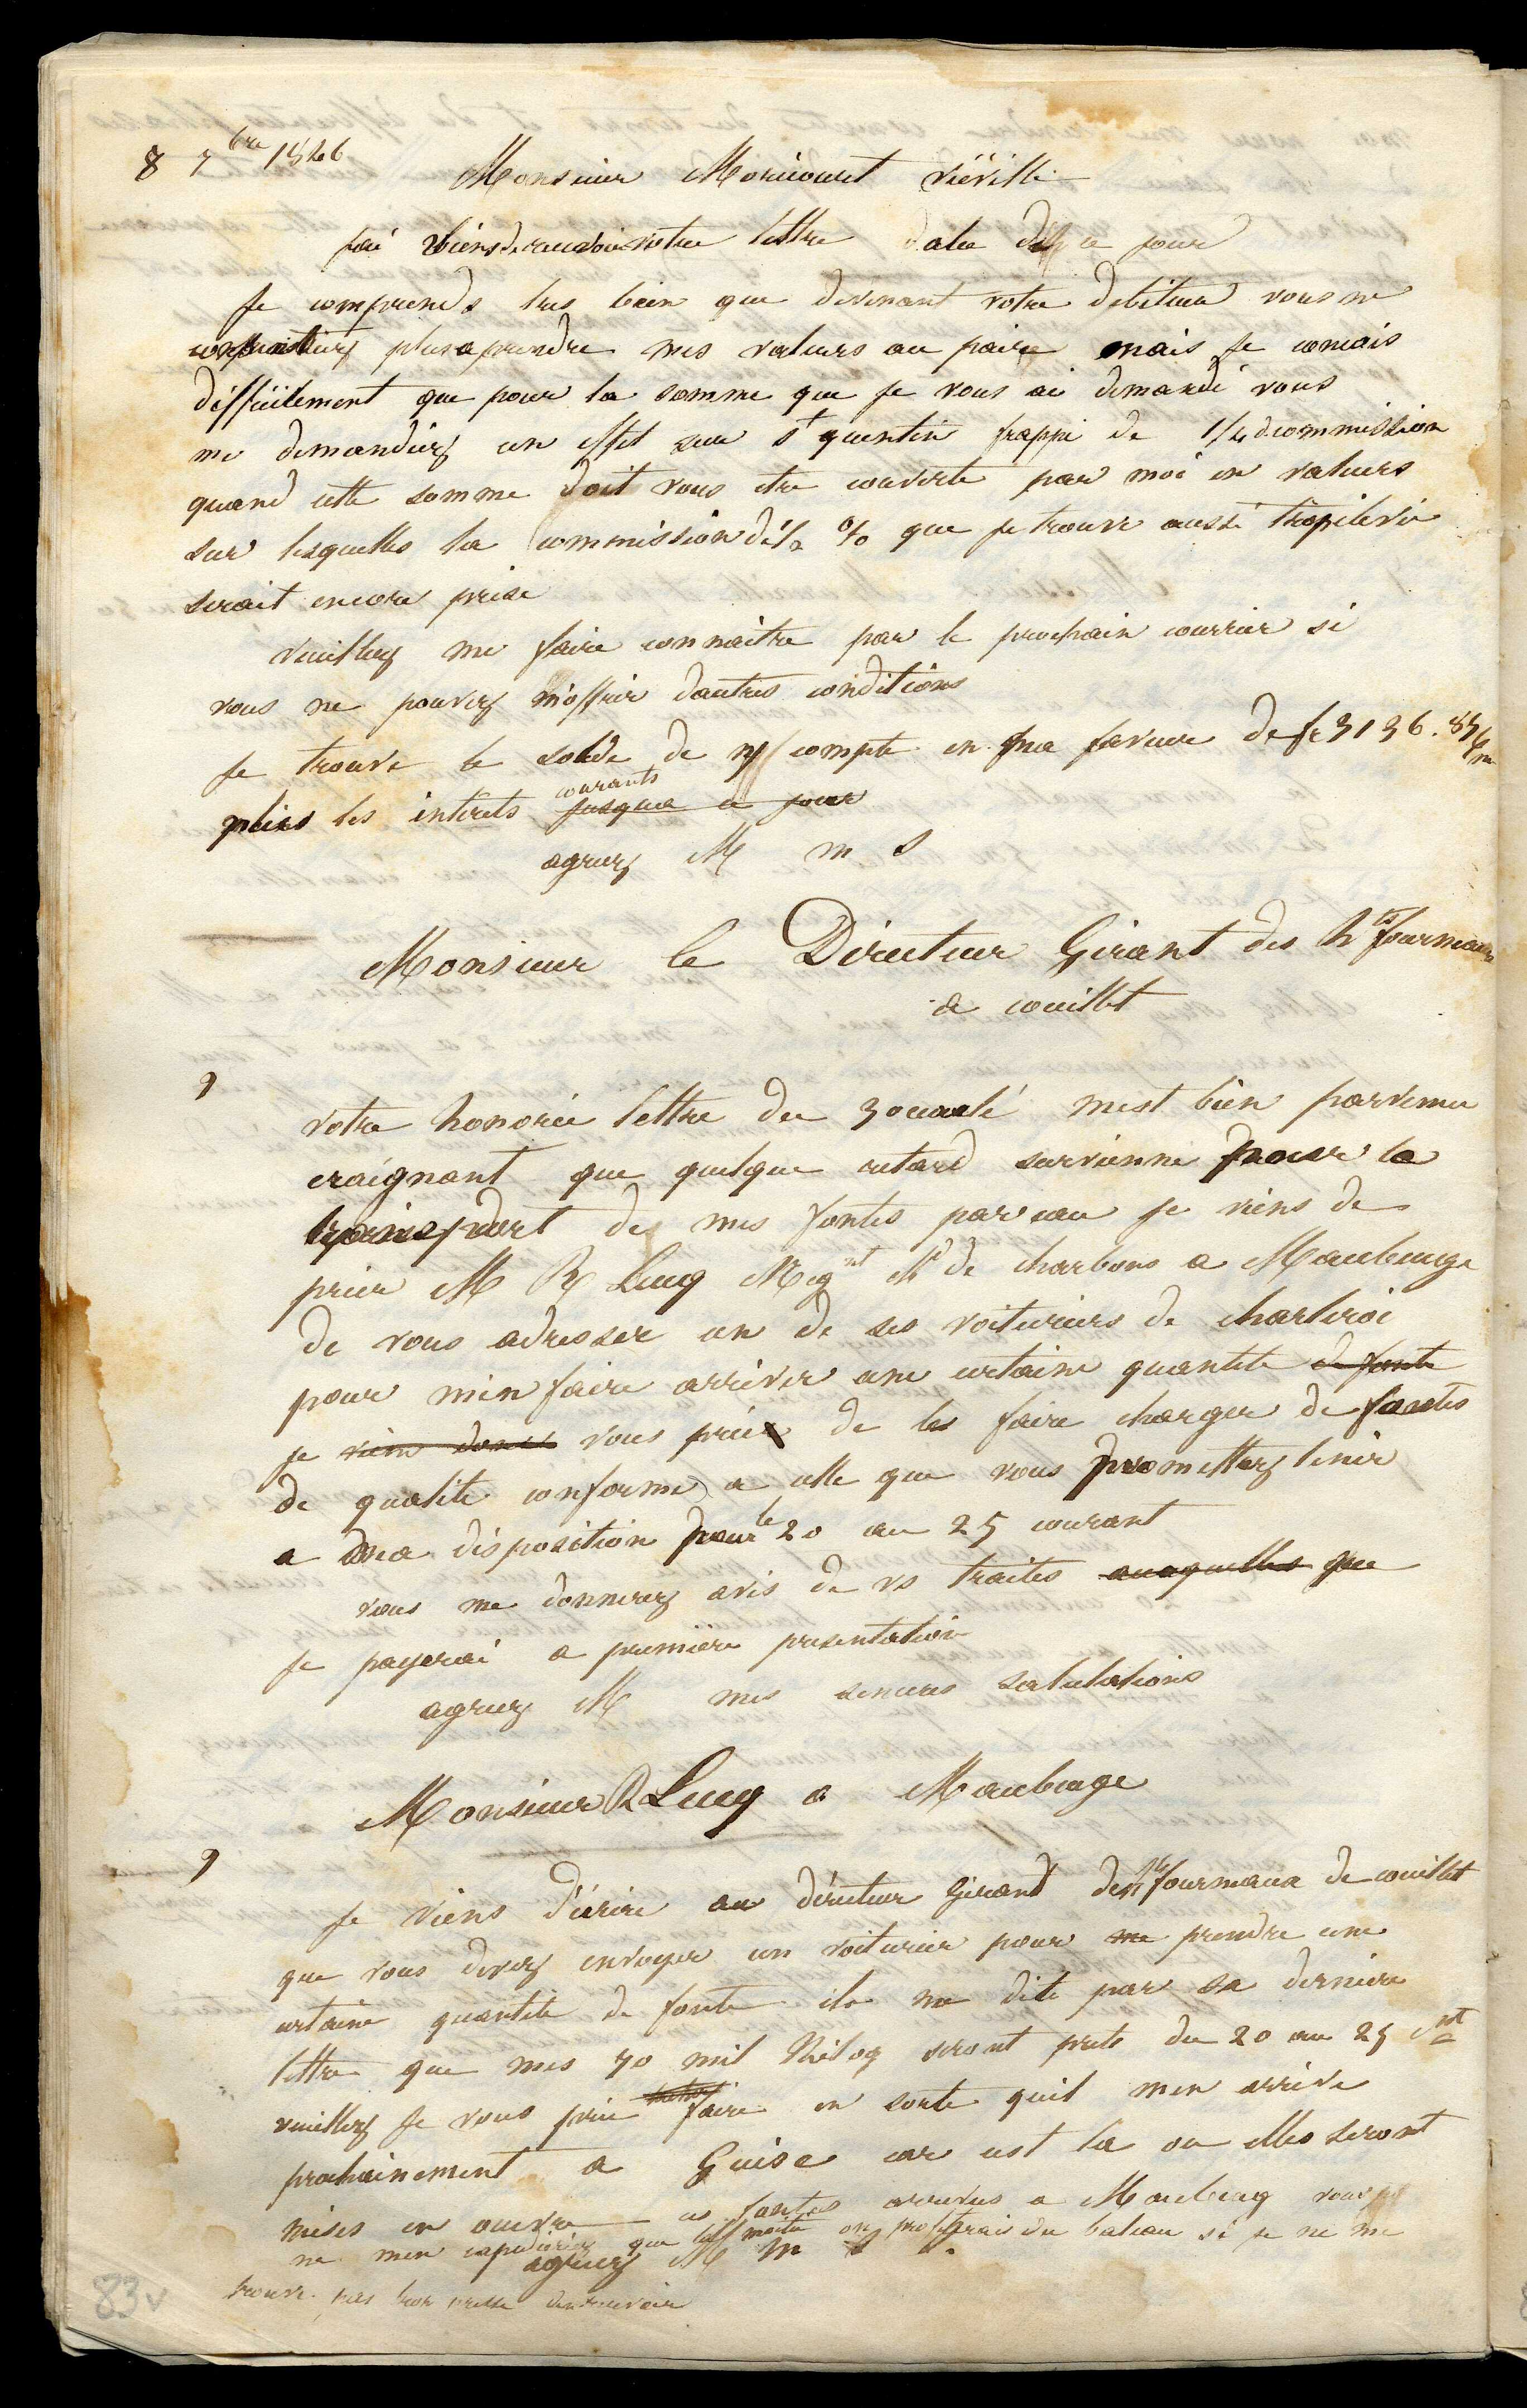 8 7bre 1846
Monsieur Moricourt Viéville
jai viens de recevoir votre lettre datee de ce jour
Je comprends tres bien que devenant votre debiteur vous ne
consentiez plus a prendre mes valeurs au paire mais je concois
difficilement que pour la somme que je vous ai demandé vous
me demandiez un effet sur St quentin frappé de 1/4 de commission
quand cette somme doit vous etre couverte par moi en valeurs
sur lesquelles la commission de 1/2 % que je trouve aussi trop elevée
serait encore prise
Veuillez me faire connaitre par le prochain courrier si
vous ne pouvez m'offrir dautres conditions
Je trouve le solde de n/ compte en ma faveur de fr 3136.85
plus les intérets jusqua ce jour courants
agreez M m S
Monsieur le Directeur Gérant des hts fourneaux
de couillet
9
Votre honorée lettre du 30 mest bien parvenue
craignant que quelque retard survienne pour le
transport de mes fontes par eau je viens de
prier M R Lucq Negnt Md de charbons a Maubeuge
de vous adresser un de ses voituriers de charleroi
pour men faire arriver une certaine quantite de fonte
je viens donc vous prie de les faire charger de fontes
de qualite conforme a celle que vous promettez tenir
a ma disposition pour le 20 au 25 courant
vous me donnerez avis de vs traites auxquelles que
je payerai a premiere presentation
agreez M mes sinceres salutations
Monsieur R Lucq a Maubeuge
9
Je viens d'écrire au directeur Gérant des hts fourneaux de couillet
que vous devez envoyer un voiturier pour me prendre une
certaine quantite de fonte il me dite par sa derniere
lettre que mes 70 mil Kilog seront prets du 20 au 25 ct
veuillez je vous prie faire en sorte quil men arrive
prochainement a Guise car cest la ou elles seront
mises en œuvre ces fontes arrivees a Maubeug vous
ne men expedieriez que la moitie on profiterais du bateau si je ne me
agreez M m S
trouve pas trop pressé den avoir
83v